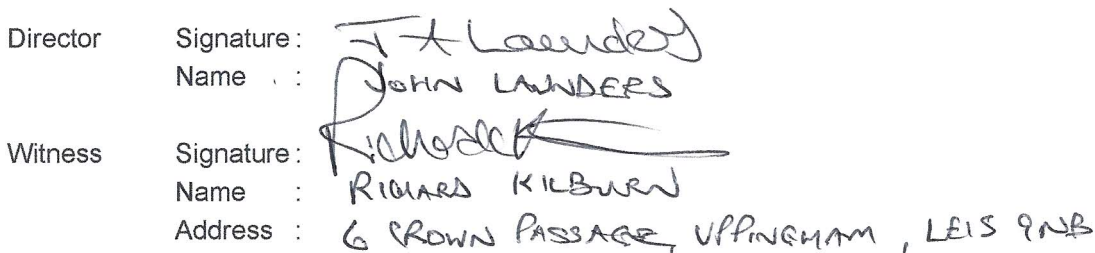 Director Signature : J A Launders
Name : JOHN LAUNDERS
Witness Signature : Richard K
Name : RICHARD KILBURN
Address : 6 CROWN PASSAGE, UPPINGHAM, LE15 9NB